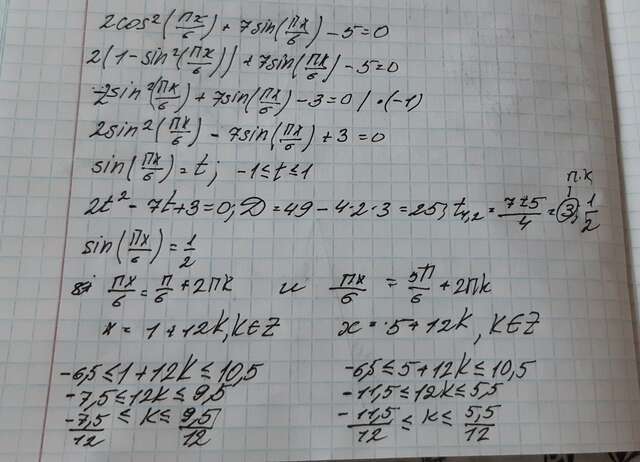 2cos²(πx/6) + 7sin(πx/6) - 5 = 0
2(1 - sin²(πx/6)) + 7sin(πx/6) - 5 = 0
-2sin²(πx/6) + 7sin(πx/6) - 3 = 0 | ·(-1)
2sin²(πx/6) - 7sin(πx/6) + 3 = 0
sin(πx/6) = t; -1 ≤ t ≤ 1
п.к
2t² - 7t + 3 = 0; D = 49 - 4·2·3 = 25; t₁,₂ = (7±5)/4 = 3; 1/2
sin(πx/6) = 1/2
πx/6 = π/6 + 2πk и πx/6 = 5π/6 + 2πk
x = 1 + 12k, k∈Z x = 5 + 12k, k∈Z
-6,5 ≤ 1 + 12k ≤ 10,5 -6,5 ≤ 5 + 12k ≤ 10,5
-7,5 ≤ 12k ≤ 9,5 -11,5 ≤ 12k ≤ 5,5
-7,5/12 ≤ k ≤ 9,5/12 -11,5/12 ≤ k ≤ 5,5/12